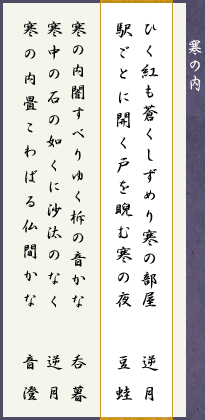 寒の内
ひく紅も蒼くしずめり寒の部屋　逆月
駅ごとに開く戸を睨む寒の夜　豆蛙
寒の内闇すべりゆく柝の音かな　呑暮
寒中の石の如くに沙汰のなく　逆月
寒の内畳こわばる仏間かな　音澄